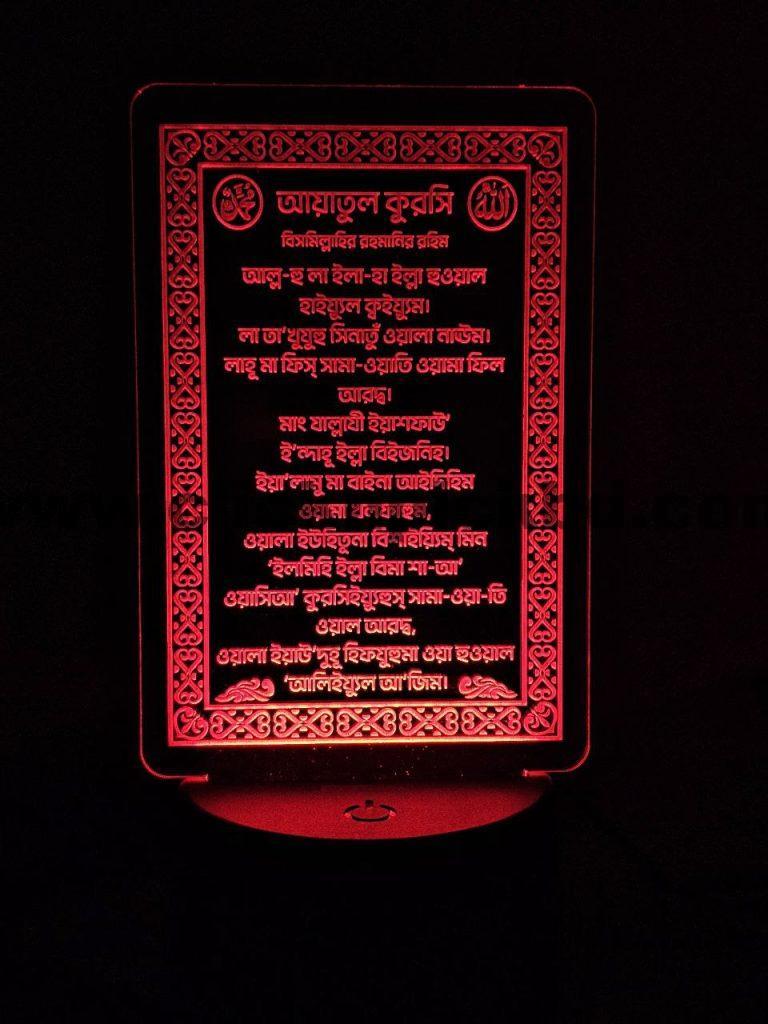 محمد আয়াতুল কুরসি الله
বিসমিল্লাহির রহমানির রহিম
আল্ল-হু লা ইলা-হা ইল্লা হুওয়াল
হাইয়্যুল ক্বইয়্যুম।
লা তা'খুযুহু সিনাতুঁ ওয়ালা নাঊম।
লাহূ মা ফিস্ সামা-ওয়াতি ওয়ামা ফিল
আরদ্ব।
মাং যাল্লাযী ইয়াশফাউ'
ই'ন্দাহূ ইল্লা বিইজনিহ।
ইয়া'লামু মা বাইনা আইদিহিম
ওয়ামা খলফাহুম,
ওয়ালা ইউহিতূনা বিশাইয়্যিম্ মিন
'ইলমিহি ইল্লা বিমা শা-আ'
ওয়াসিআ' কুরসিইয়্যুহুস্ সামা-ওয়া-তি
ওয়াল আরদ্ব,
ওয়ালা ইয়াউ'দুহূ হিফযুহুমা ওয়া হুওয়াল
'আলিইয়্যুল আ'জিম।